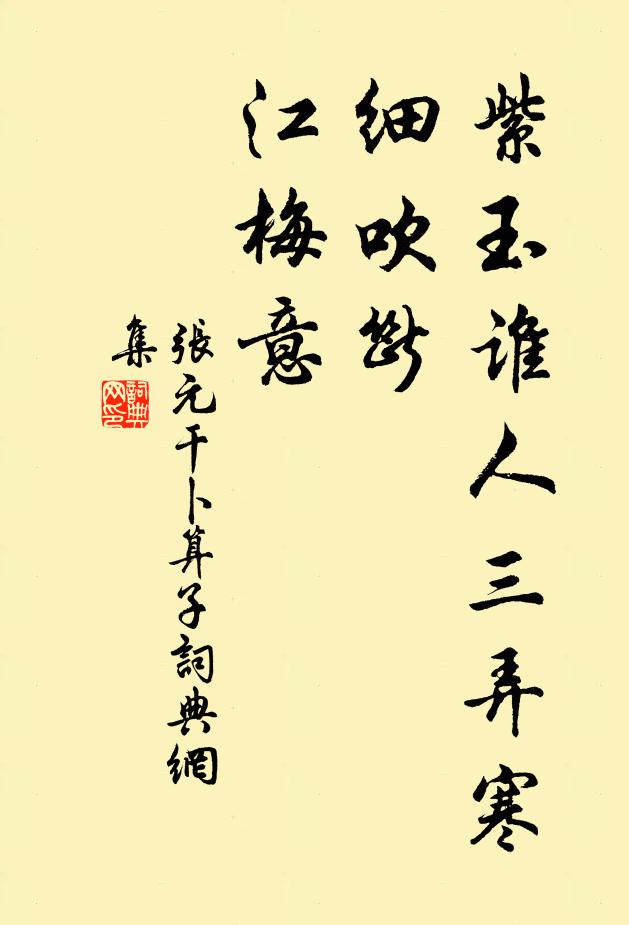 紫玉誰人三弄寒
細吹斷
江梅意
張元干卜算子詞典網
集
詞典
网印